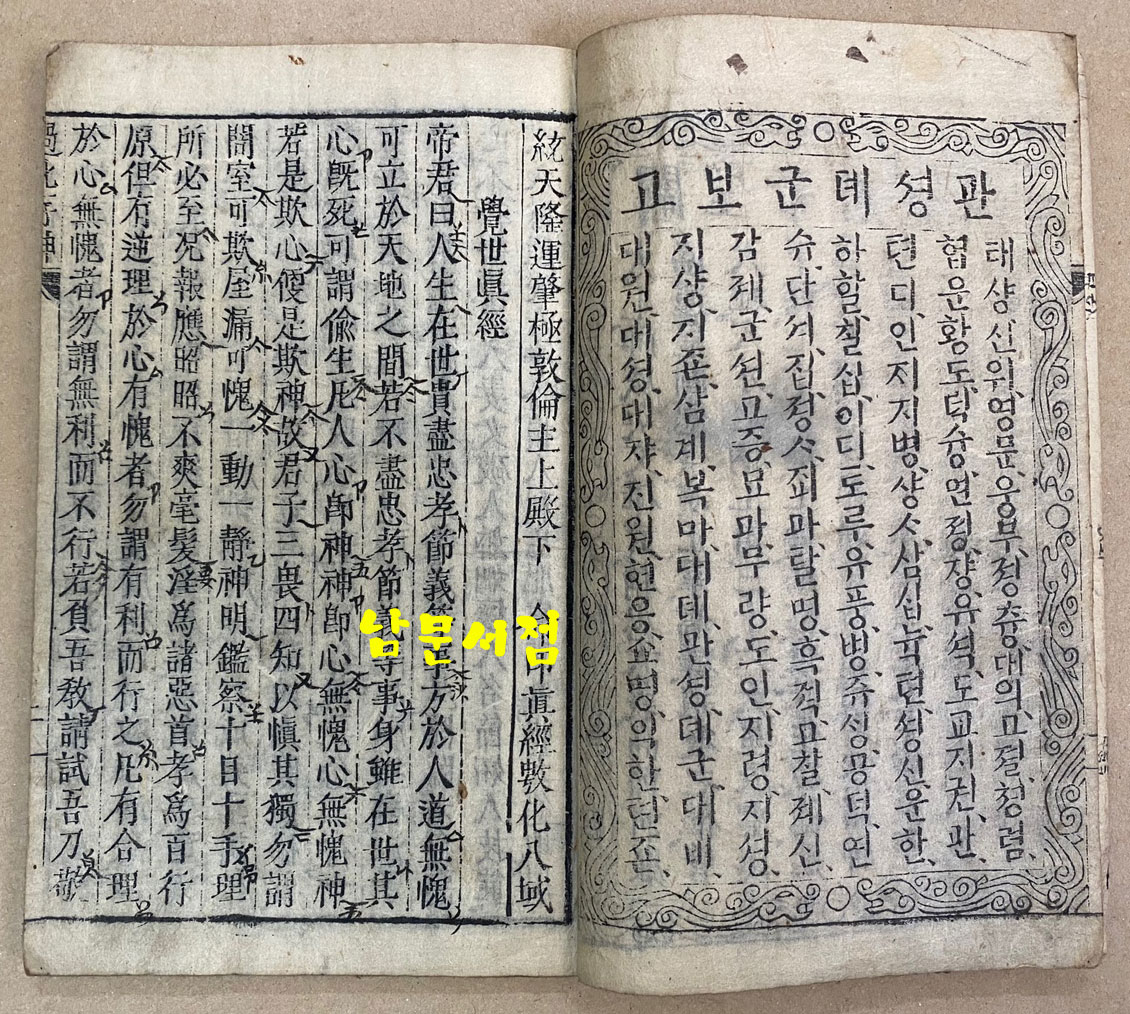 관셩뎨군보고
태샹신위,영문,웅부,정츙,대의,고졀,청렴,
협운황도,덕슝,연정쟝,유석,도교지권,관,
텬디인지지병,샹,亽,삼십뉵텬셩신운한,
하할,칠십이디,도류유풍병,쥬셩,공덕,연
슈,단셔,집,정亽,죄파달명,흑적,고찰졔신,
감졔,군션,고증묘과무량도인,지령,지셩,
지샹,지죤,삼계,복마,대뎨,관셩뎨군,대비,
대원,대셩,대쟈,진원,현응,쇼명,익한,텬죤,
統天隆運肇極敦倫主上殿下 印眞經數化八域
覺世眞經
帝君曰人生在世貴盡忠孝節義等事方於人道無愧
可立於天地之間若不盡忠孝節義等事身雖在世其
心旣死可謂偸生凡人心卽神神卽心無愧心無愧神
若是欺心便是欺神故君子三畏四知以愼其獨勿謂
闇室可欺屋漏可愧一動一靜神明鑑察十目十手理
所必至況報應昭昭不爽毫髮淫爲諸惡首孝爲百行
原但有逆理於心有愧者勿謂有利而行之凡有合理
於心無愧者勿謂無利而不行若負吾敎請試吾刀敬
過化存神
남문서점